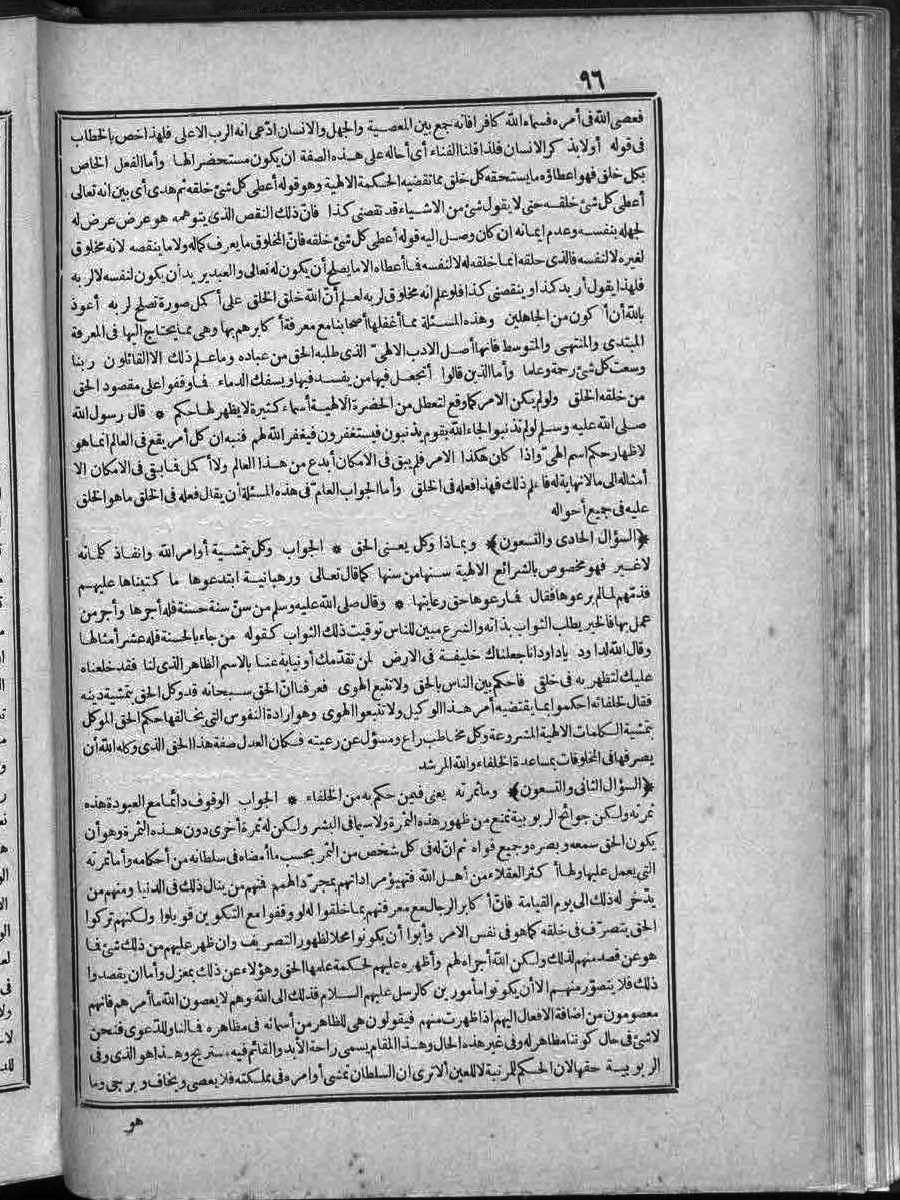 ٩٦
فعصى الله فى أمره فسماه الله كافرا فانه جمع بين المعصية والجهل والانسان ادّعى انه الرب الاعلى فلهذا خص بالخطاب
فى قوله أولا يذكر الانسان فلذا قلنا الفناء أى أحاله على هذه الصفة ان يكون مستحضرا لها وأما الفعل الخاص
بكل خلق فهو اعطاؤه ما يستحقه كل خلق مما تقتضيه الحكمة الالهية وهو قوله أعطى كل شئ خلقه ثم هدى أى بين انه تعالى
أعطى كل شئ خلقه حتى لا يقول شئ من الاشياء قد نقصنى كذا فانّ ذلك النقص الذى يتوهمه هو عرض عرض له
لجهله بنفسه وعدم ايمانه ان كان وصل اليه قوله أعطى كل شئ خلقه فانّ المخلوق ما يعرف كماله ولا ما ينقصه لانه مخلوق
لغيره لا لنفسه فالذى خلقه انما خلقه له لا لنفسه فما أعطاه الا ما يصلح أن يكون له تعالى والعبد يريد أن يكون لنفسه لا لربه
فلهذا يقول أريد كذا وينقصنى كذا فلو علم انه مخلوق لربه لعلم أنّ الله خلق الخلق على أكمل صورة تصلح لربه أعوذ
بالله أن أكون من الجاهلين وهذه المسئلة مما أغفلها أصحابنا مع معرفة أكابرهم بها وهى مما يحتاج اليها فى المعرفة
المبتدى والمنتهى والمتوسط فانها أصل الادب الالهىّ الذى طلبه الحق من عباده وما علم ذلك الا القائلون ربنا
وسعت كل شئ رحمة وعلما وأما الذين قالوا أتجعل فيها من يفسد فيها ويسفك الدماء فما وقفوا على مقصود الحق
من خلقه الخلق ولو لم يكن الامر كما وقع لتعطل من الحضرة الالهية أسماء كثيرة لا يظهر لها حكم * قال رسول الله
صلى الله عليه وسلم لو لم تذنبوا لجاء الله بقوم يذنبون فيستغفرون فيغفر الله لهم فنبه ان كل أمر يقع فى العالم انما هو
لاظهار حكم اسم الهىّ واذا كان هكذا الامر فلم يبق فى الامكان أبدع من هذا العالم ولا أكمل فما بقى فى الامكان الا
أمثاله الى ما لا نهاية له فاعلم ذلك فهذا فعله فى الخلق وأما الجواب العامّ فى هذه المسئلة أن يقال فعله فى الخلق ما هو الخلق
عليه فى جميع أحواله
﴿السؤال الحادى والتسعون﴾ وبماذا وكل يعنى الحق * الجواب وكل بتمشية أوامر الله وانفاذ كلماته
لا غير فهو مخصوص بالشرائع الالهية سنها من سنها كما قال تعالى ورهبانية ابتدعوها ما كتبناها عليهم
فذمّهم لما لم يرعوها فقال فما رعوها حق رعايتها * وقال صلى الله عليه وسلم من سنّ سنة حسنة فله أجرها وأجر من
عمل بها فالخير يطلب الثواب بذاته والشرع مبين للناس توقيت ذلك الثواب كقوله من جاء بالحسنة فله عشر أمثالها
وقال الله لداود يا داود انا جعلناك خليفة فى الارض لمن تقدّمك أو نيابة عنا بالاسم الظاهر الذى لنا فقد خلعناه
عليك لتظهر به فى خلقى فاحكم بين الناس بالحق ولا تتبع الهوى فعرفنا انّ الحق سبحانه قد وكل الحق بتمشية دينه
فقال لخلفائه احكموا بما يقتضيه أمر هذا الوكيل ولا تتبعوا الهوى وهو ارادة النفوس التى يخالفها حكم الحق الموكل
بتمشية الكلمات الالهية المشروعة وكل مخاطب راع ومسؤل عن رعيته فكان العدل صفة هذا الحق الذى وكله الله أن
يصرفها فى المخلوقات بمساعدة الخلفاء والله المرشد
﴿السؤال الثانى والتسعون﴾ وما ثمرته يعنى فيمن حكم به من الخلفاء * الجواب الوقوف دائما مع العبودة هذه
ثمرته ولكن جوائح الربوبية تمنع من ظهور هذه الثمرة ولا سيما فى البشر ولكن له ثمرة أخرى دون هذه الثمرة وهو أن
يكون الحق سمعه وبصره وجميع قواه ثم انّ له فى كل شخص من الثمر بحسب ما أمضاه فى سلطانه من أحكامه وأما ثمرته
التى يعمل عليها ولها أكثر العقلاء من أهل الله فتهيؤ مراداتهم بمجرّد الهمم فمنهم من ينال ذلك فى الدنيا ومنهم من
يدّخر له ذلك الى يوم القيامة فانّ أكابر الرجال مع معرفتهم بما خلقوا له لو وقفوا مع التكوين قوبلوا ولكنهم تركوا
الحق يتصرّف فى خلقه كما هو فى نفس الامر وأبوا أن يكونوا محلا لظهور التصريف وان ظهر عليهم من ذلك شئ فما
هو عن قصد منهم لذلك ولكن الله أجراه لهم وأظهره عليهم لحكمة علمها الحق وهؤلاء عن ذلك بمعزل وأما ان يقصدوا
ذلك فلا يتصوّر منهم الا أن يكونوا مأمورين كالرسل عليهم السلام فذلك الى الله وهم لا يعصون الله ما أمرهم فانهم
معصومون من اضافة الافعال اليهم اذا ظهرت منهم فيقولون هى للظاهر من أسمائه فى مظاهره فما لنا وللدّعوى فنحن
لا شئ فى حال كوننا مظاهر له وفى غير هذه الحال وهذا المقام يسمى راحة الأبد والقائم فيه مستريح وهذا هو الذى وفى
الربوبية حقها لان الحكم للمرتبة لا للعين ألا ترى ان السلطان تمشى أوامره فى مملكته فلا يعصى ويخاف ويرجى وما
هو